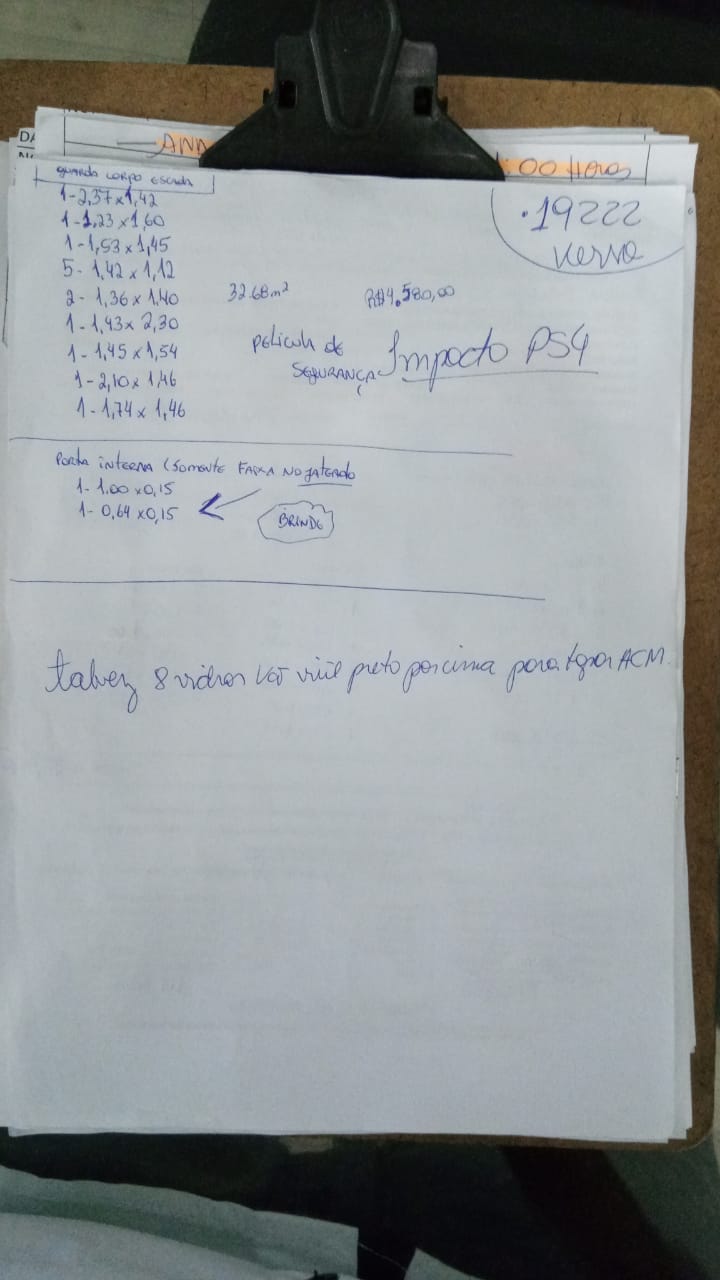 DA
ANN
:00 Horas
GUARDA CORPO ESCADA
1-2,37x1,42
1-1,23x1,60
1-1,53x1,45
5-1,42x1,12
2-1,36x1,40
1-1,43x2,30
1-1,45x1,54
1-2,10x1,46
1-1,74x1,46
32.68m²
R$4.580,00
.19222
PELICULA DE
SEGURANÇA
Impacto PS4
PORTA INTERNA (SOMENTE FAIXA NO JATEADO
1-1.00x0,15
1-0,64x0,15
BRINDE
talvez 8 vidros vai vinil preto por cima para ACM.